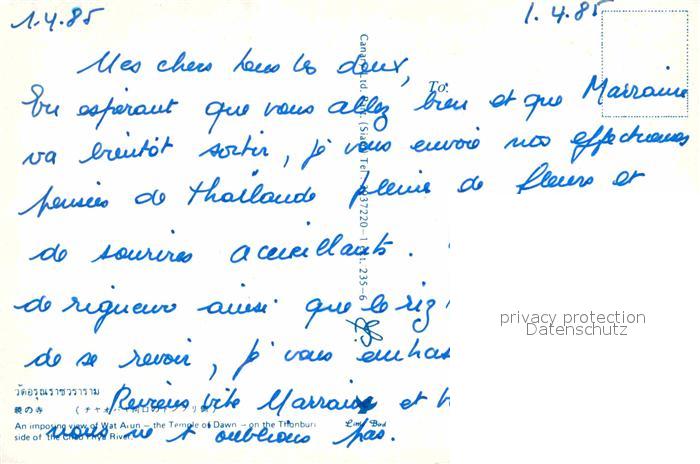 1.4.85 1.4.85
Mes chers tous les deux,
To:
En espérant que vous allez bien et que Marraine
va bientôt sortir, je vous envoie nos affectueuses
pensées de Thaïlande pleine de fleurs et
de sourires accueillants.
de rigueur ainsi que le riz
de se revoir, je vous embras
Reviens vite Marraine et
nous ne t'oublions pas.
วัดอรุณราชวราราม
暁の寺
An imposing view of Wat Arun – the Temple of Dawn – on the Thonburi
side of the Chao Phya River.
privacy protection
Datenschutz